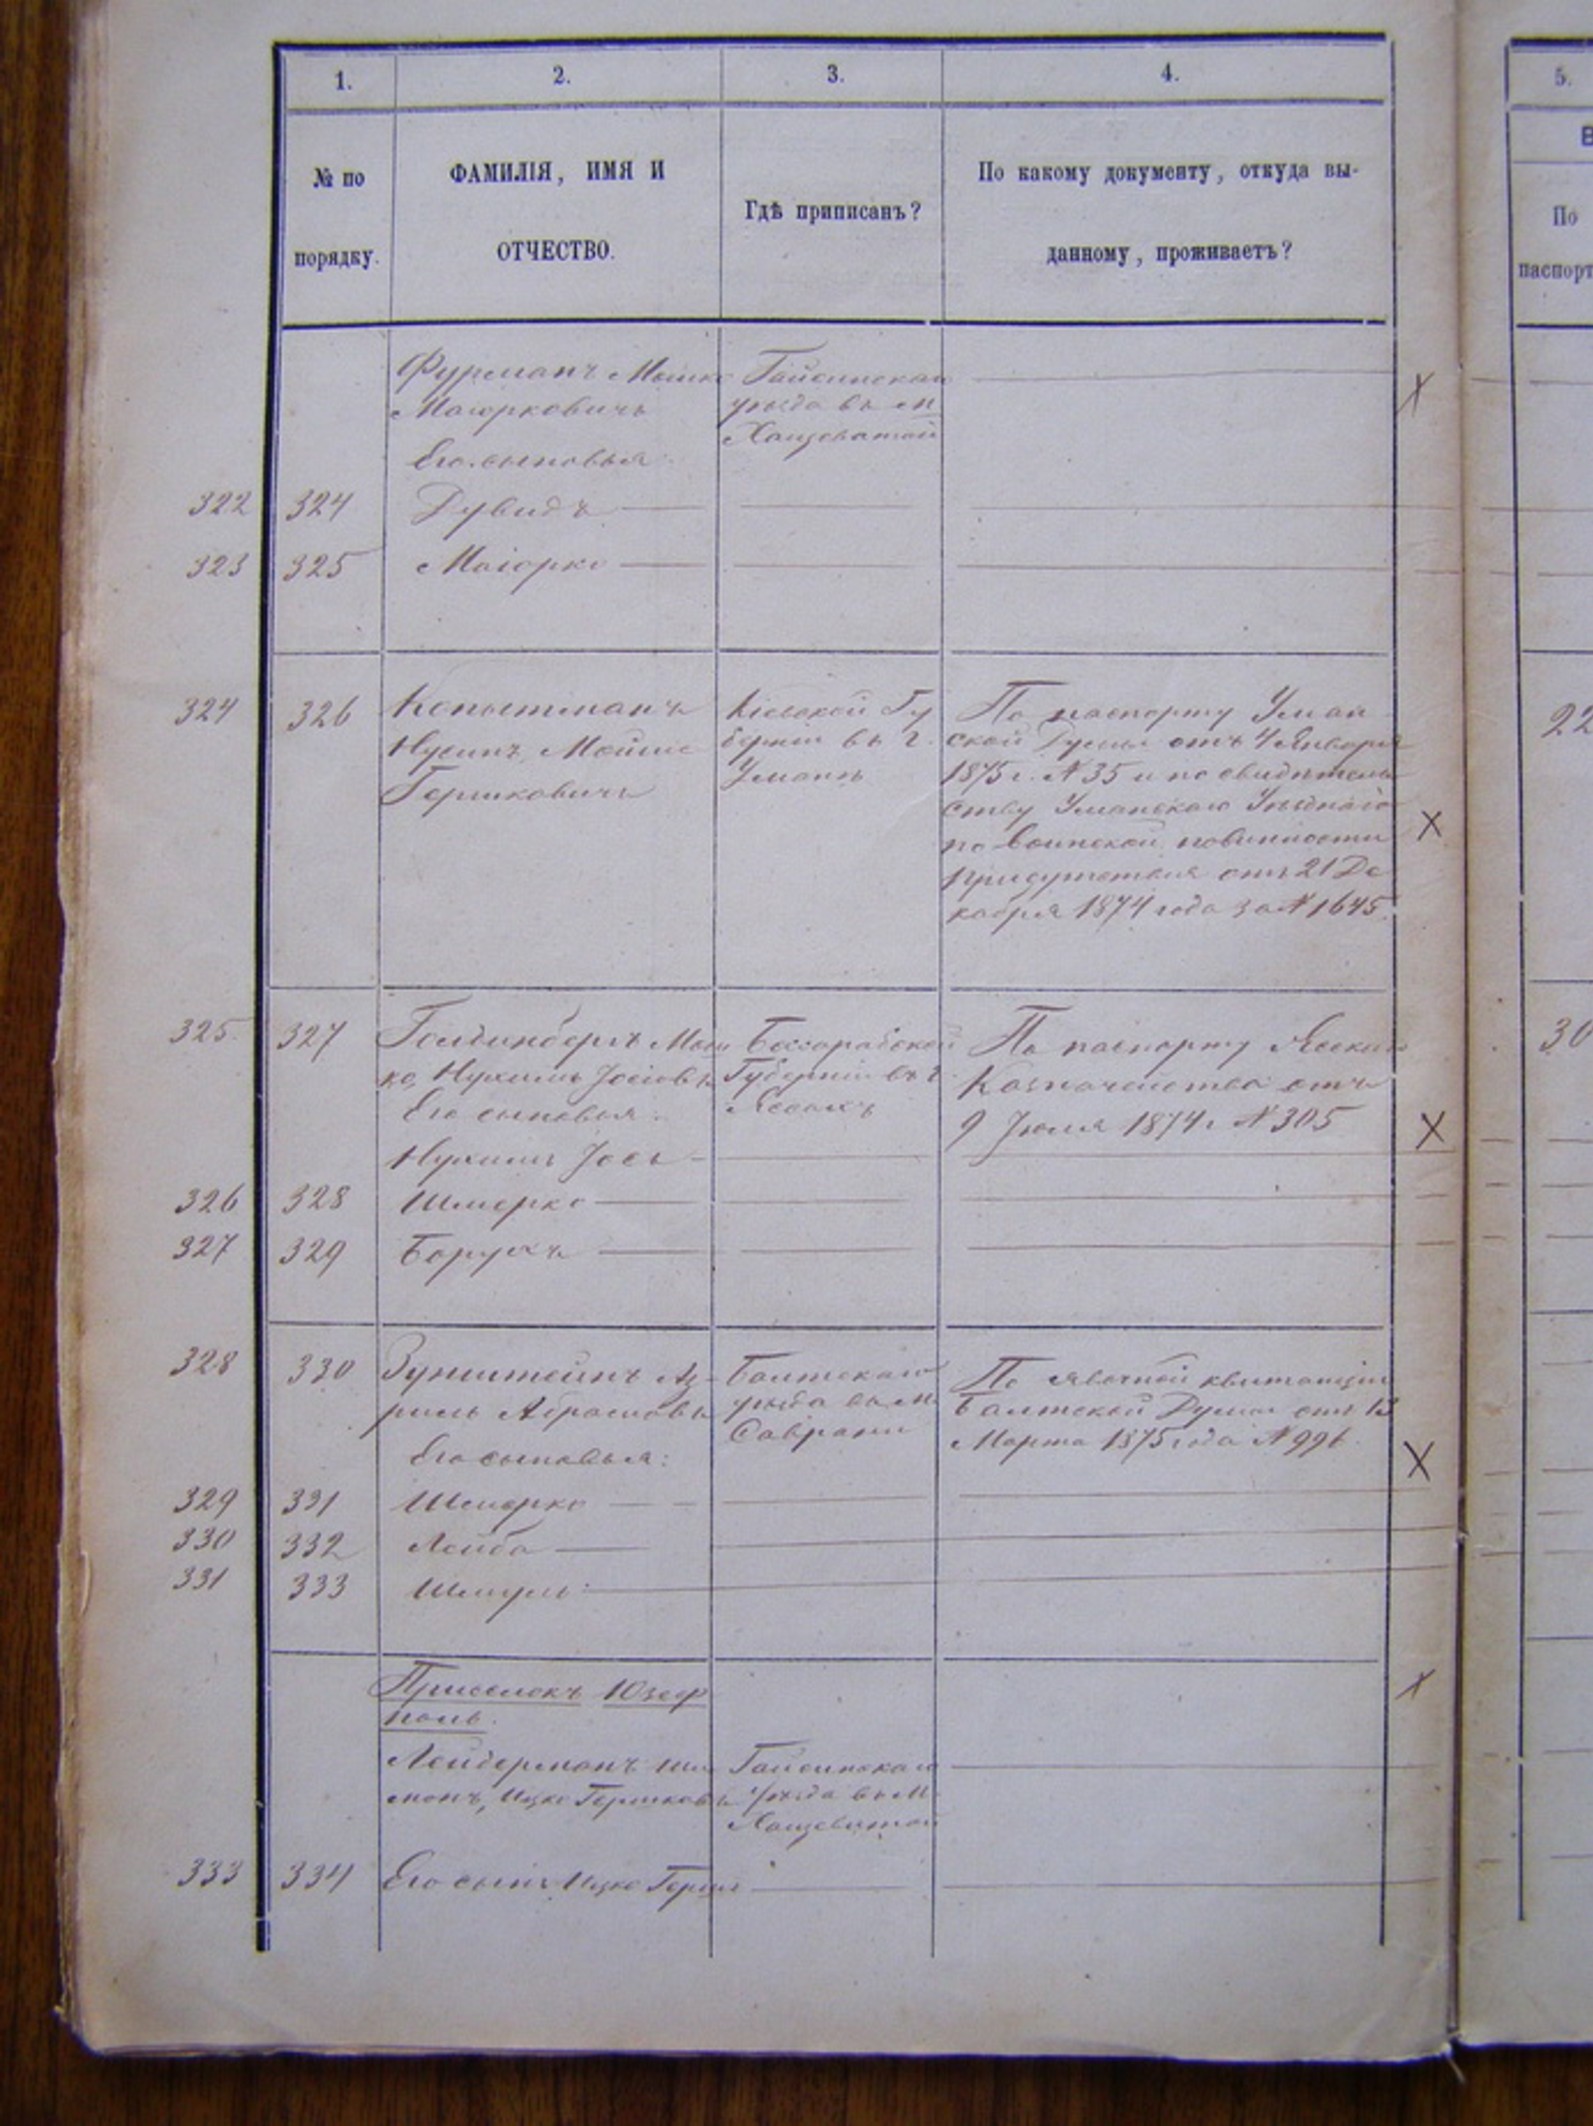 1.
2.
3.
4.
5.
№ по
порядку.
ФАМИЛІЯ, ИМЯ И
ОТЧЕСТВО.
Гдѣ приписанъ?
По какому документу, откуда вы-
данному, проживаетъ?
По
паспорт
Фурманъ Мошко
Маіорковичъ
Его сыновья:
Гайсинскаго
уѣзда въ м
Хащеватой
322 324 Дувидъ
323 325 Маіорко
324 326 Копытманъ
Нусинъ Мойше
Гершковичъ
Кіевской Гу
берніи въ г.
Умани
По паспорту Уман
ской Думы отъ 4 Января
1875 г. № 35 и по свидѣтель
ству Уманскаго Уѣзднаго
по воинской повинности
присутствія отъ 21 Де
кабря 1874 года за № 1645.
22
325 327 Голдинберъ Мош
ко, Нухимъ Іосіовъ
Его сыновья:
Нухимъ Іось
Бессарабской
Губерніи въ г.
Яссахъ
По паспорту
Казначейства отъ
9 Іюля 1874 г № 305
30
326 328 Шмерко
327 329 Борухъ
328 330 Зунштейнъ Аз-
риль Абрамовъ
Его сыновья:
Балтскаго
уѣзда въ м.
Саврани
По явочной квитанціи
Балтской Думы отъ 13
Марта 1875 года № 996.
329 331 Шмерко
330 332 Лейба
331 333 Шмуль
Приселокъ Юзеф
поль.
Лейдерманъ Ши
монъ, Ицко Гершковъ
Гайсинскаго
Уѣзда въ м.
Хащеватой
333 334 Его сынъ Ицко Гершъ